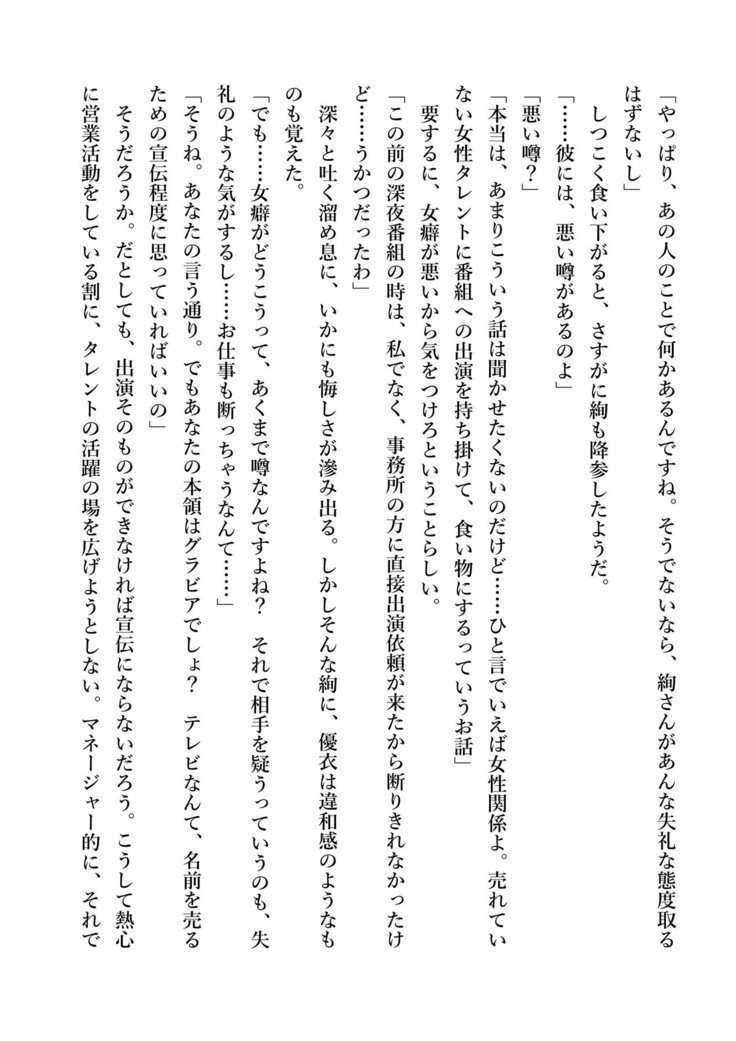 「やっぱり、あの人のことで何かあるんですね。そうでないなら、絢さんがあんな失礼な態度取る
はずないし」
　しつこく食い下がると、さすがに絢も降参したようだ。
「……彼には、悪い噂があるのよ」
「悪い噂？」
「本当は、あまりこういう話は聞かせたくないのだけど……ひと言でいえば女性関係よ。売れてい
ない女性タレントに番組への出演を持ち掛けて、食い物にするっていうお話」
　要するに、女癖が悪いから気をつけろということらしい。
「この前の深夜番組の時は、私でなく、事務所の方に直接出演依頼が来たから断りきれなかったけ
ど……うかつだったわ」
　深々と吐く溜め息に、いかにも悔しさが滲み出る。しかしそんな絢に、優衣は違和感のようなも
のも覚えた。
「でも……女癖がどうこうって、あくまで噂なんですよね？　それで相手を疑うっていうのも、失
礼のような気がするし……お仕事も断っちゃうなんて……」
「そうね。あなたの言う通り。でもあなたの本領はグラビアでしょ？　テレビなんて、名前を売る
ための宣伝程度に思っていればいいの」
　そうだろうか。だとしても、出演そのものができなければ宣伝にならないだろう。こうして熱心
に営業活動をしている割に、タレントの活躍の場を広げようとしない。マネージャー的に、それで